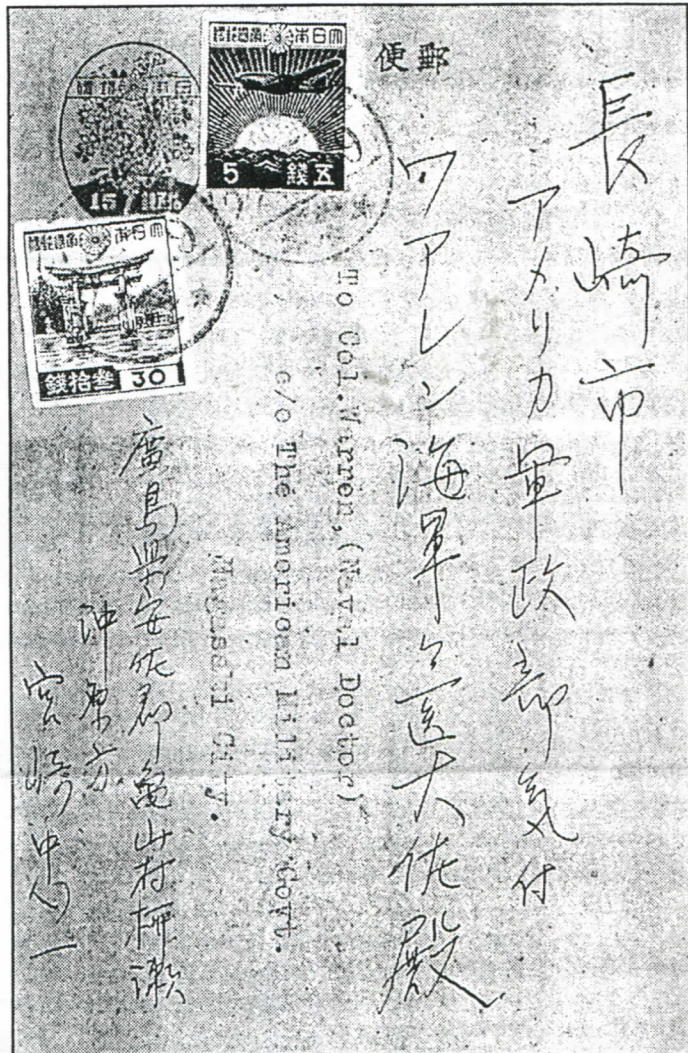 郵便
長崎市
アメリカ軍政部気付
ワアレン海軍々医大佐殿
To Col.Warren,(Naval Doctor)
c/o The American Military Govt.
Nagasaki City.
廣島県安佐郡亀山村柳瀬
沖原方
宮崎
大日本帝國郵便
5 五銭
大日本帝國郵便
叁拾銭 30
15